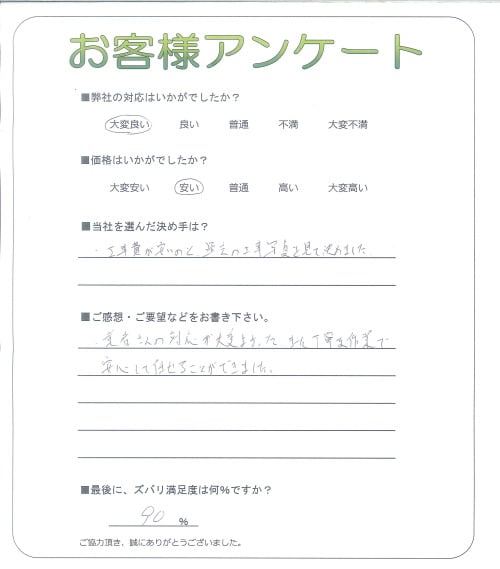 お客様アンケート
■弊社の対応はいかがでしたか?
大変良い 良い 普通 不満 大変不満
■価格はいかがでしたか?
大変安い 安い 普通 高い 大変高い
■当社を選んだ決め手は?
・工事費が安いのと、過去の工事写真を見て決めました
■ご感想・ご要望などをお書き下さい。
・業者さんの対応が大変よかった また丁寧な作業で
安心して任せることができました。
■最後に、ズバリ満足度は何%ですか?
90 %
ご協力頂き、誠にありがとうございました。